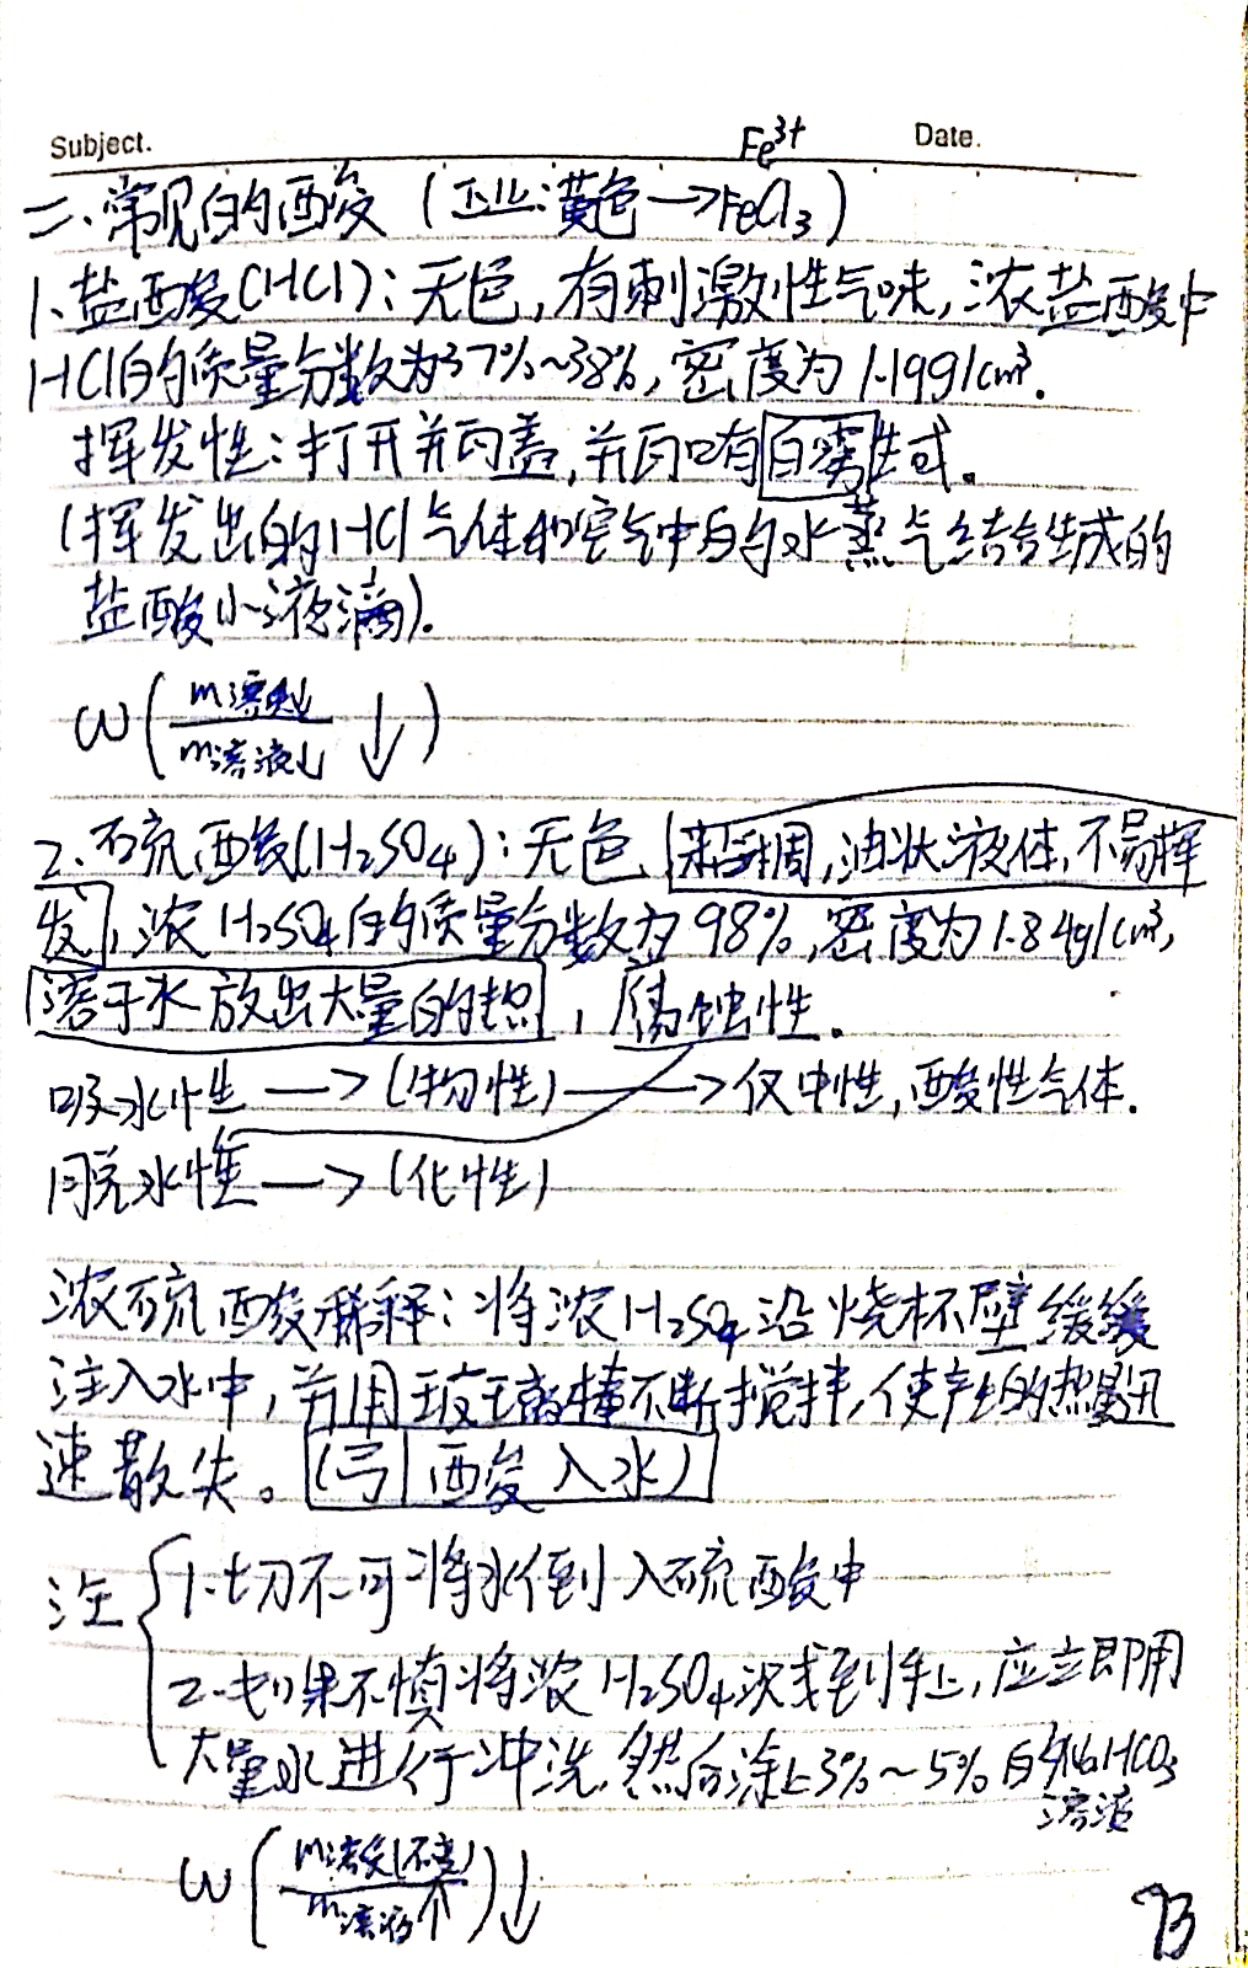 Subject.
Date.
Fe³⁺
二、常见的酸 (工业:黄色→FeCl₃)
1.盐酸(HCl):无色,有刺激性气味,浓盐酸中
HCl的质量分数为37%~38%,密度为1.19g/cm³.
挥发性:打开并瓦盖,并瓦口有白雾生成。
(挥发出的HCl气体和空气中的水蒸气结合生成的
盐酸小液滴).
ω(m溶质↓/m溶液↓ ↓)
2.硫酸(H₂SO₄):无色,粘稠,油状液体,不易挥
发,浓H₂SO₄的质量分数为98%,密度为1.84g/cm³,
溶于水放出大量的热,腐蚀性.
吸水性→(物性)→仅中性,酸性气体.
脱水性→(化性)
浓硫酸稀释:将浓H₂SO₄沿烧杯壁缓缓
注入水中,并用玻璃棒不断搅拌,使产生的热量迅
速散失。(引酸入水)
注 1.切不可将水倒入硫酸中
2.如果不慎将浓H₂SO₄溅到手上,应立即用
大量水进行冲洗.然后涂上3%~5%的NaHCO₃
溶液
ω(m溶质(不变)/m溶液↑)↓
73